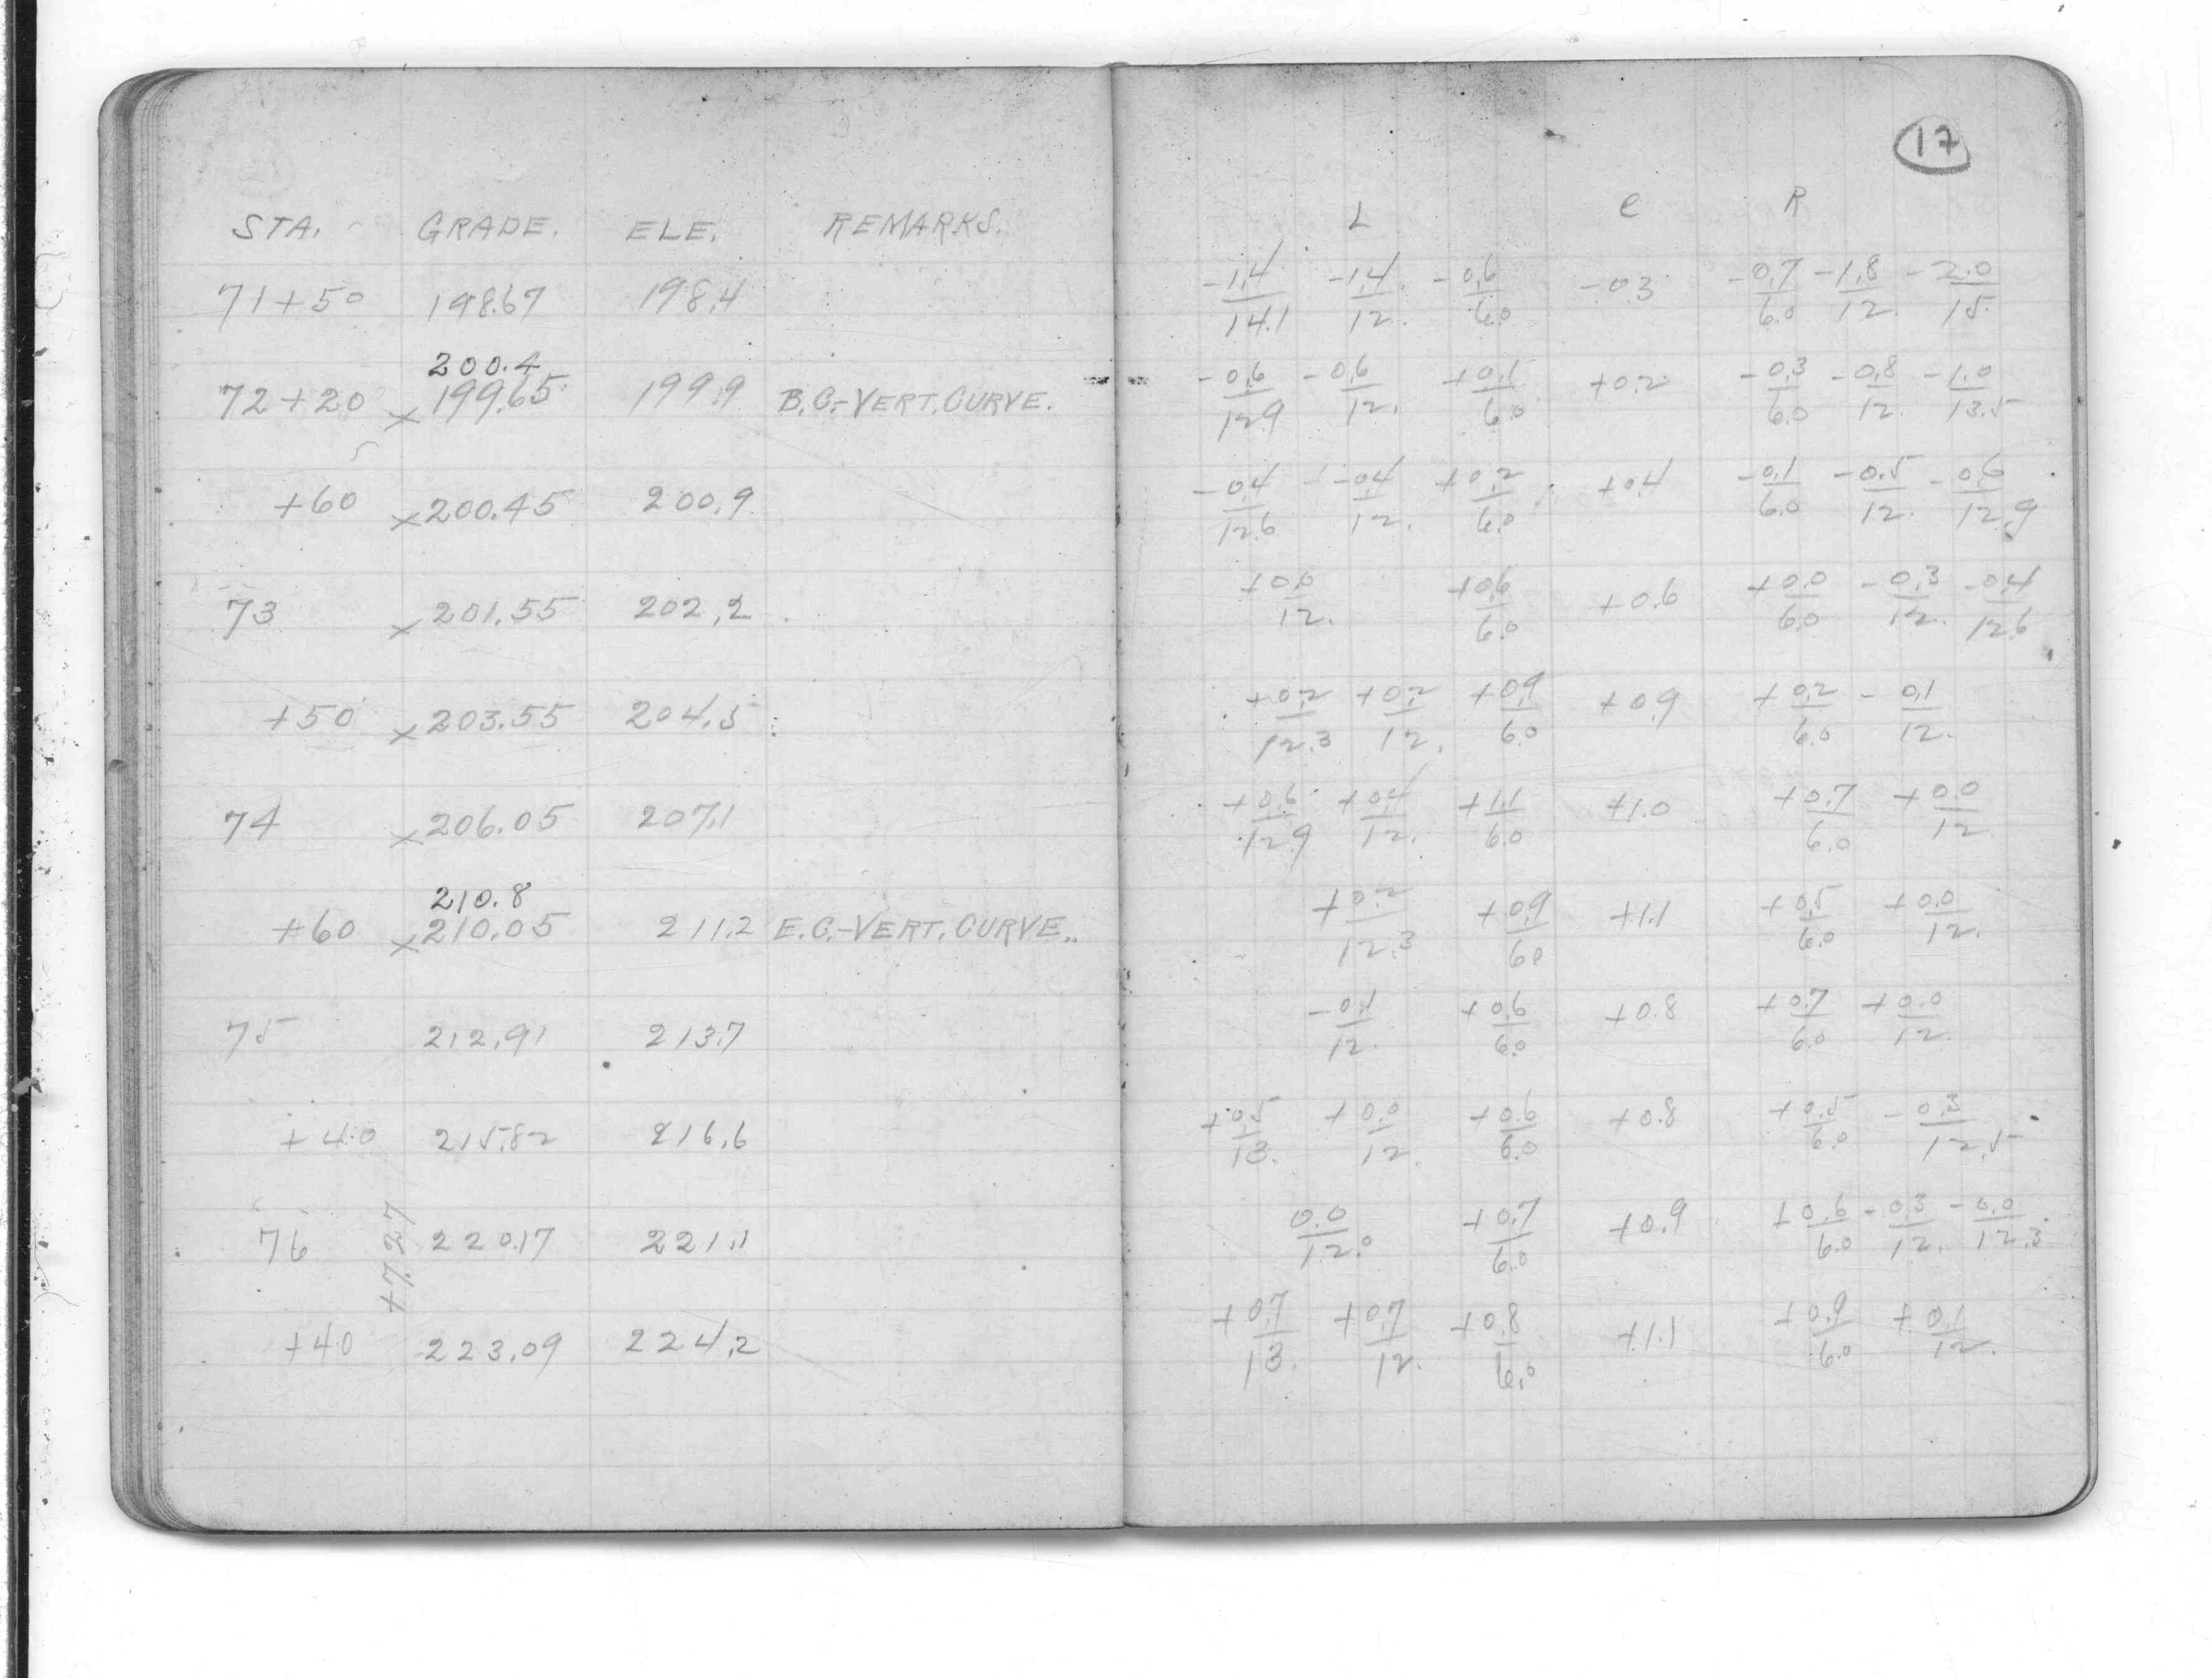 STA. GRADE. ELE. REMARKS.
71+50 198.67 198.4
200.4
72+20 x 199.65 199.9 B.C.-VERT. CURVE.
+60 x 200.45 200.9
73 x 201.55 202.2
+50 x 203.55 204.5
74 x 206.05 207.1
210.8
+60 x 210.05 211.2 E.C.-VERT. CURVE.
75 212.91 213.7
+40 215.82 216.6
76 220.17 221.1
+7.27
+40 223.09 224.2
17
L e R
-1.4 -1.4 -0.6 -0.3 -0.7 -1.8 -2.0
14.1 12. 6.0 6.0 12. 15.
-0.6 -0.6 +0.1 +0.2 -0.3 -0.8 -1.0
12.9 12. 6.0 6.0 12. 13.5
-0.4 -0.4 +0.2 +0.4 -0.1 -0.5 -0.6
12.6 12. 6.0 6.0 12. 12.9
+0.0 +0.6 +0.6 +0.0 -0.3 -0.4
12. 6.0 6.0 12. 12.6
+0.2 +0.2 +0.9 +0.9 +0.2 -0.1
12.3 12. 6.0 6.0 12.
+0.6 +0.4 +1.1 +1.0 +0.7 +0.0
12.9 12. 6.0 6.0 12
+0.2 +0.9 +1.1 +0.5 +0.0
12.3 6.0 6.0 12.
-0.1 +0.6 +0.8 +0.7 +0.0
12. 6.0 6.0 12.
+0.5 +0.0 +0.6 +0.8 +0.5 -0.3
13. 12. 6.0 6.0 12.5
0.0 +0.7 +0.9 +0.6 -0.3 -0.0
12.0 6.0 6.0 12. 12.3
+0.7 +0.7 +0.8 +1.1 +0.9 +0.1
13. 12. 6.0 6.0 12.